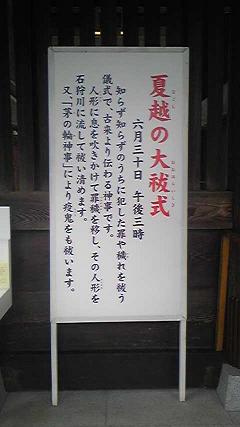 夏越の大祓式
なごし
おおはらいしき
六月三十日 午後三時
知らず知らずのうちに犯した罪や穢れを祓う
儀式で、古来より伝わる神事です。
人形に息を吹きかけて罪穢を移し、その人形を
石狩川に流して祓い清めます。
又「茅の輪神事」により疫鬼をも祓います。